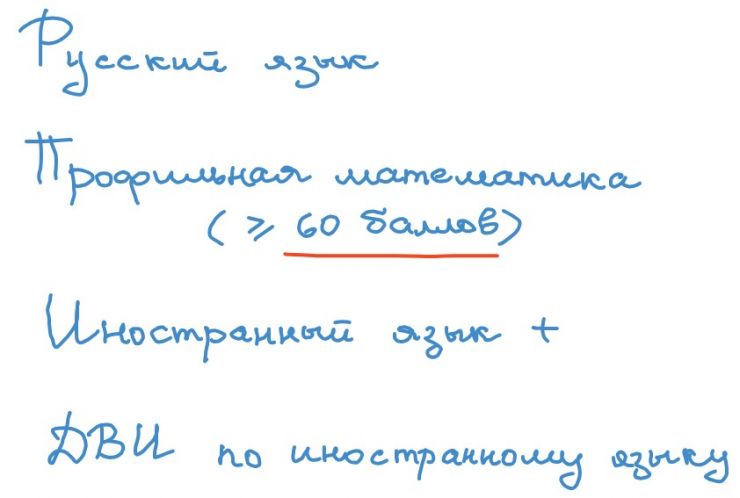 Русский язык
Профильная математика
(⩾ 60 баллов)
Иностранный язык +
ДВИ по иностранному языку